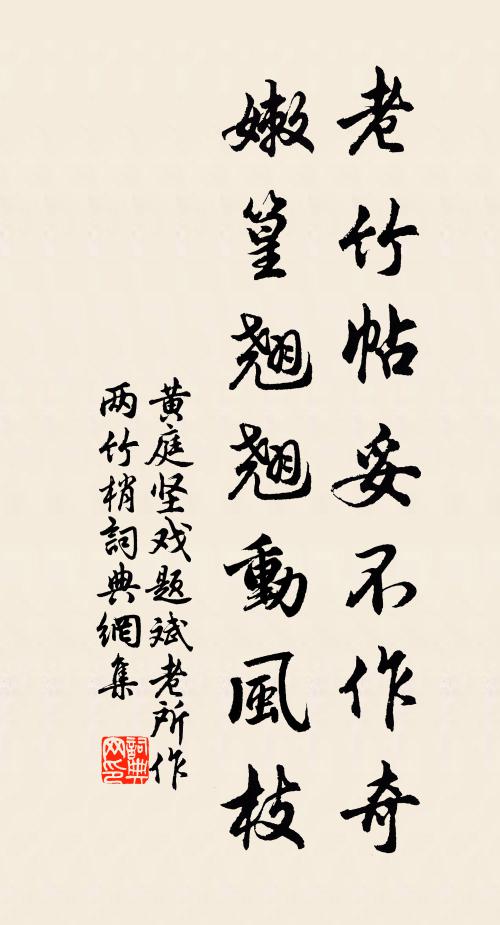 老竹帖妥不作奇
嫩篁翘翘動風枝
黄庭坚戏题斌老所作
两竹梢詞典網集
詞典网印